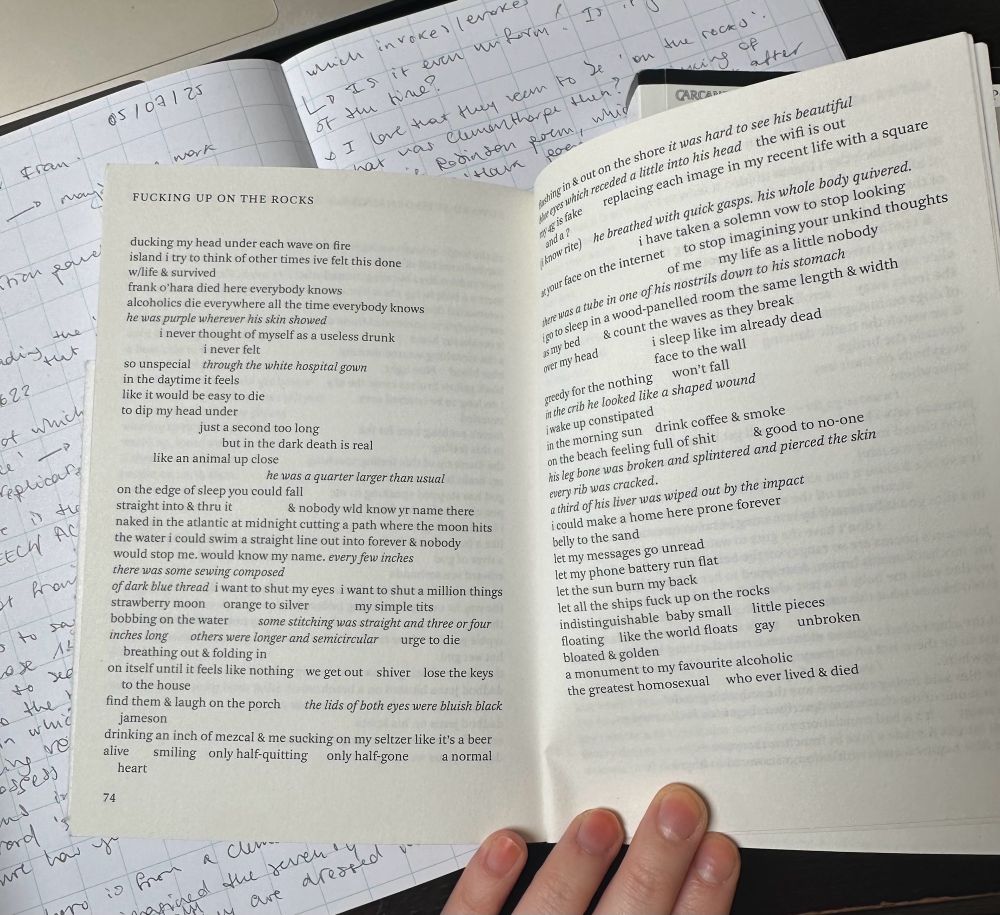 05/07/25
Fran.
work
which invokes/evokes
Is it even uniform?
of the time?
I love that they seem to be 'on the rocks'.
what was Clementhorpe then?
after
CARCA
FUCKING UP ON THE ROCKS
ducking my head under each wave on fire
island i try to think of other times ive felt this done
w/life & survived
frank o'hara died here everybody knows
alcoholics die everywhere all the time everybody knows
he was purple wherever his skin showed
i never thought of myself as a useless drunk
i never felt
so unspecial through the white hospital gown
in the daytime it feels
like it would be easy to die
to dip my head under
just a second too long
but in the dark death is real
like an animal up close
he was a quarter larger than usual
on the edge of sleep you could fall
straight into & thru it & nobody wld know yr name there
naked in the atlantic at midnight cutting a path where the moon hits
the water i could swim a straight line out into forever & nobody
would stop me. would know my name. every few inches
there was some sewing composed
of dark blue thread i want to shut my eyes i want to shut a million things
strawberry moon orange to silver my simple tits
bobbing on the water some stitching was straight and three or four
inches long others were longer and semicircular urge to die
breathing out & folding in
on itself until it feels like nothing we get out shiver lose the keys
to the house
find them & laugh on the porch the lids of both eyes were bluish black
jameson
drinking an inch of mezcal & me sucking on my seltzer like it's a beer
alive smiling only half-quitting only half-gone a normal
heart
74
flashing in & out on the shore it was hard to see his beautiful
blue eyes which receded a little into his head the wifi is out
my 4g is fake replacing each image in my recent life with a square
and a ?
(i know rite) he breathed with quick gasps. his whole body quivered.
i have taken a solemn vow to stop looking
at your face on the internet to stop imagining your unkind thoughts
of me my life as a little nobody
there was a tube in one of his nostrils down to his stomach
i go to sleep in a wood-panelled room the same length & width
as my bed & count the waves as they break
over my head i sleep like im already dead
face to the wall
greedy for the nothing won't fall
in the crib he looked like a shaped wound
i wake up constipated
in the morning sun drink coffee & smoke
on the beach feeling full of shit & good to no-one
his leg bone was broken and splintered and pierced the skin
every rib was cracked.
a third of his liver was wiped out by the impact
i could make a home here prone forever
belly to the sand
let my messages go unread
let my phone battery run flat
let the sun burn my back
let all the ships fuck up on the rocks
indistinguishable baby small little pieces
floating like the world floats gay unbroken
bloated & golden
a monument to my favourite alcoholic
the greatest homosexual who ever lived & died